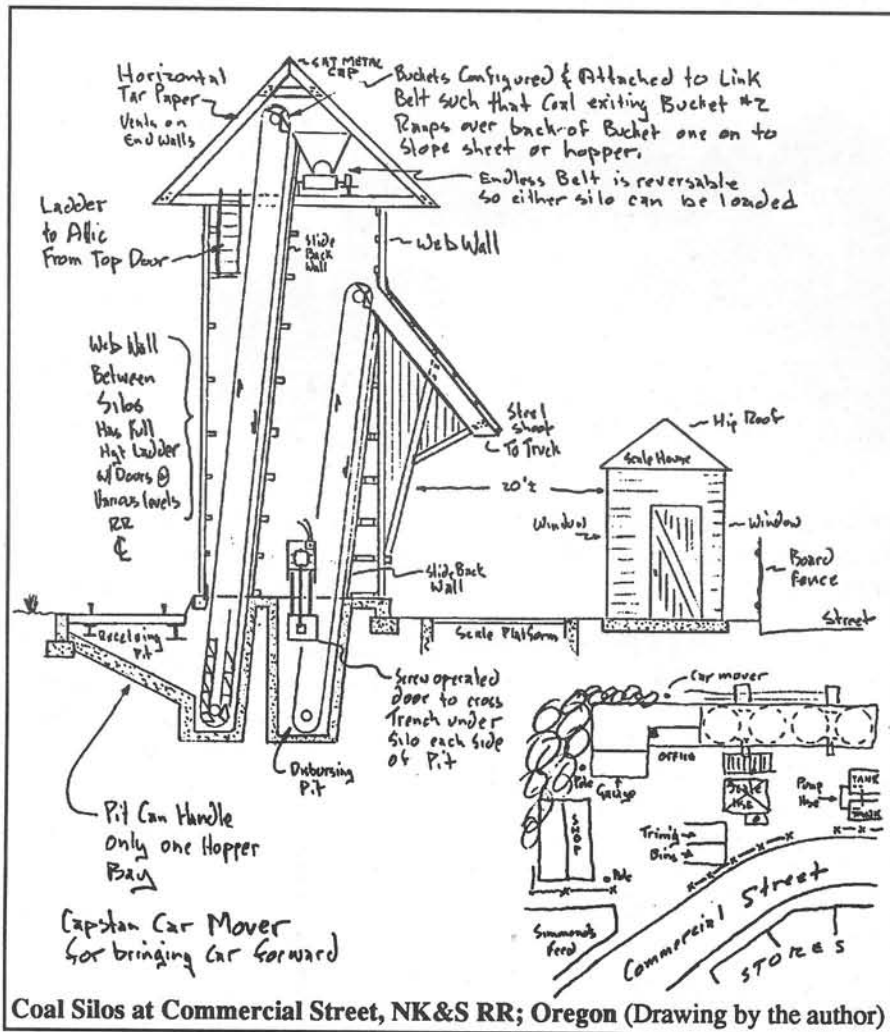 Horizontal
Tar Paper
Vents on
End Walls
GAT METAL
CAP
Buckets Configured & Attached to Link
Belt such that Coal exiting Bucket #2
Raups over back of Bucket one on to
Slope sheet or hopper.
Endless Belt is reversable
so either silo can be loaded
Ladder
to Attic
From Top Door
Slide
Back
Wall
Web Wall
Web Wall
Between
Silos
Has Full
Hgt Ladder
w/Doors @
Various levels
RR
℄
Steel
Shoot
To Truck
20'±
Hip Roof
Scale House
Window
Window
Board
Fence
Street
Slide Back
Wall
Receiving
Pit
Scale Platform
Screw operated
door to cross
Trench under
Silo each side
of Pit
Disbursing
Pit
Pit Can Handle
only one Hopper
Bay
Capstan Car Mover
for bringing car forward
Car mover
OFFICE
Pole
Garage
SHOP
Scale
Hse
Pump
Hse
TANK
TANK
Trim'g
Bins
Pole
Simmonds
Feed
Commercial Street
STORES
Coal Silos at Commercial Street, NK&S RR; Oregon (Drawing by the author)